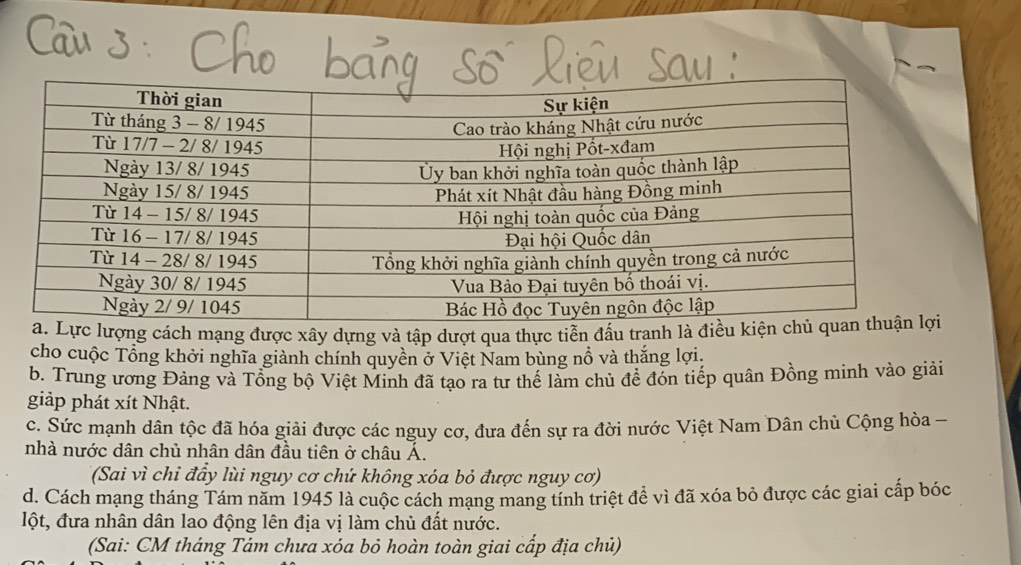 Câu 3: Cho bảng số liệu sau:
Thời gian Sự kiện
Từ tháng 3 – 8/ 1945 Cao trào kháng Nhật cứu nước
Từ 17/7 – 2/ 8/ 1945 Hội nghị Pốt-xđam
Ngày 13/ 8/ 1945 Ủy ban khởi nghĩa toàn quốc thành lập
Ngày 15/ 8/ 1945 Phát xít Nhật đầu hàng Đồng minh
Từ 14 – 15/ 8/ 1945 Hội nghị toàn quốc của Đảng
Từ 16 – 17/ 8/ 1945 Đại hội Quốc dân
Từ 14 – 28/ 8/ 1945 Tổng khởi nghĩa giành chính quyền trong cả nước
Ngày 30/ 8/ 1945 Vua Bảo Đại tuyên bố thoái vị.
Ngày 2/ 9/ 1045 Bác Hồ đọc Tuyên ngôn độc lập
a. Lực lượng cách mạng được xây dựng và tập dượt qua thực tiễn đấu tranh là điều kiện chủ quan thuận lợi
cho cuộc Tổng khởi nghĩa giành chính quyền ở Việt Nam bùng nổ và thắng lợi.
b. Trung ương Đảng và Tổng bộ Việt Minh đã tạo ra tư thế làm chủ để đón tiếp quân Đồng minh vào giải
giảp phát xít Nhật.
c. Sức mạnh dân tộc đã hóa giải được các nguy cơ, đưa đến sự ra đời nước Việt Nam Dân chủ Cộng hòa –
nhà nước dân chủ nhân dân đầu tiên ở châu Á.
(Sai vì chỉ đẩy lùi nguy cơ chứ không xóa bỏ được nguy cơ)
d. Cách mạng tháng Tám năm 1945 là cuộc cách mạng mang tính triệt để vì đã xóa bỏ được các giai cấp bóc
lột, đưa nhân dân lao động lên địa vị làm chủ đất nước.
(Sai: CM tháng Tám chưa xóa bỏ hoàn toàn giai cấp địa chủ)